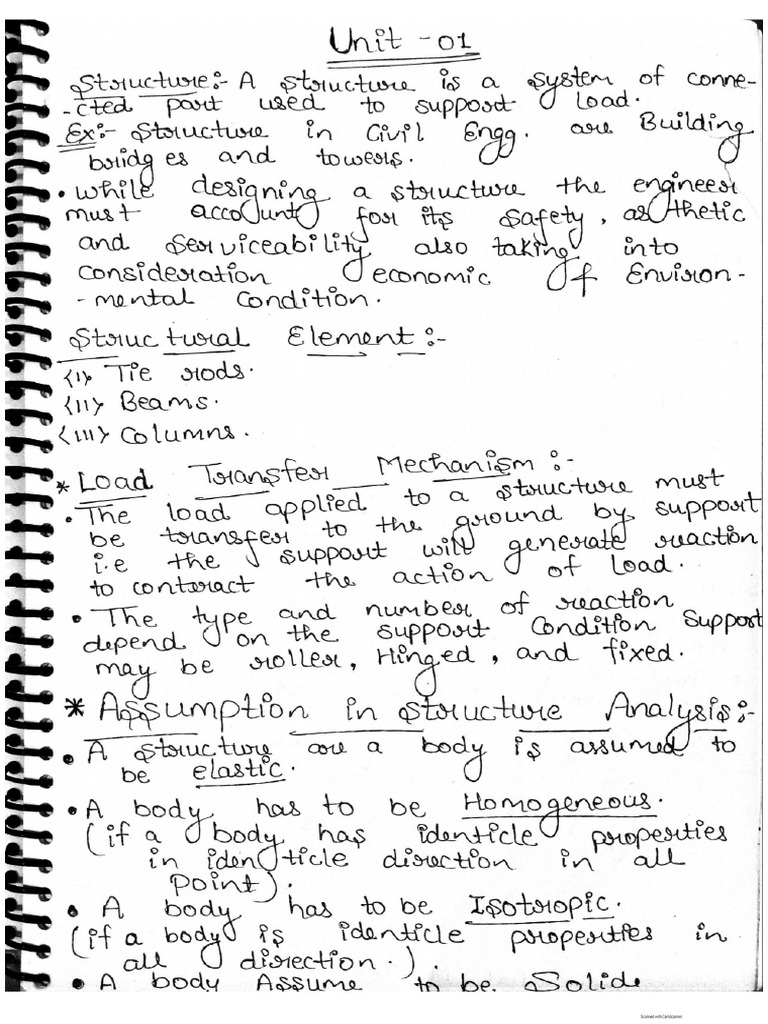 Unit - 01
Structure:- A structure is a system of conne-
-cted part used to support load.
Ex:- Structure in Civil Engg. are Building
bridges and towers.
• while designing a structure the engineer
must account for its safety, asthetic
and serviceability also taking into
consideration economic of Environ-
-mental Condition.
Structural Element:-
<I> Tie rods.
<II> Beams.
<III> Columns.
* Load Transfer Mechanism :-
• The load applied to a structure must
be transfer to the ground by support
i.e the support will generate reaction
to conteract the action of load.
• The type and number of reaction
depend on the support Condition Support
may be roller, Hinged, and fixed.
* Assumption in structure Analysis:-
• A structure are a body is assumed to
be elastic.
• A body has to be Homogeneous.
(if a body has identicle properties
in identicle direction in all
point).
• A body has to be Isotropic.
(if a body is identicle properties in
all direction.).
• A body Assume to be Solide
Scanned with CamScanner